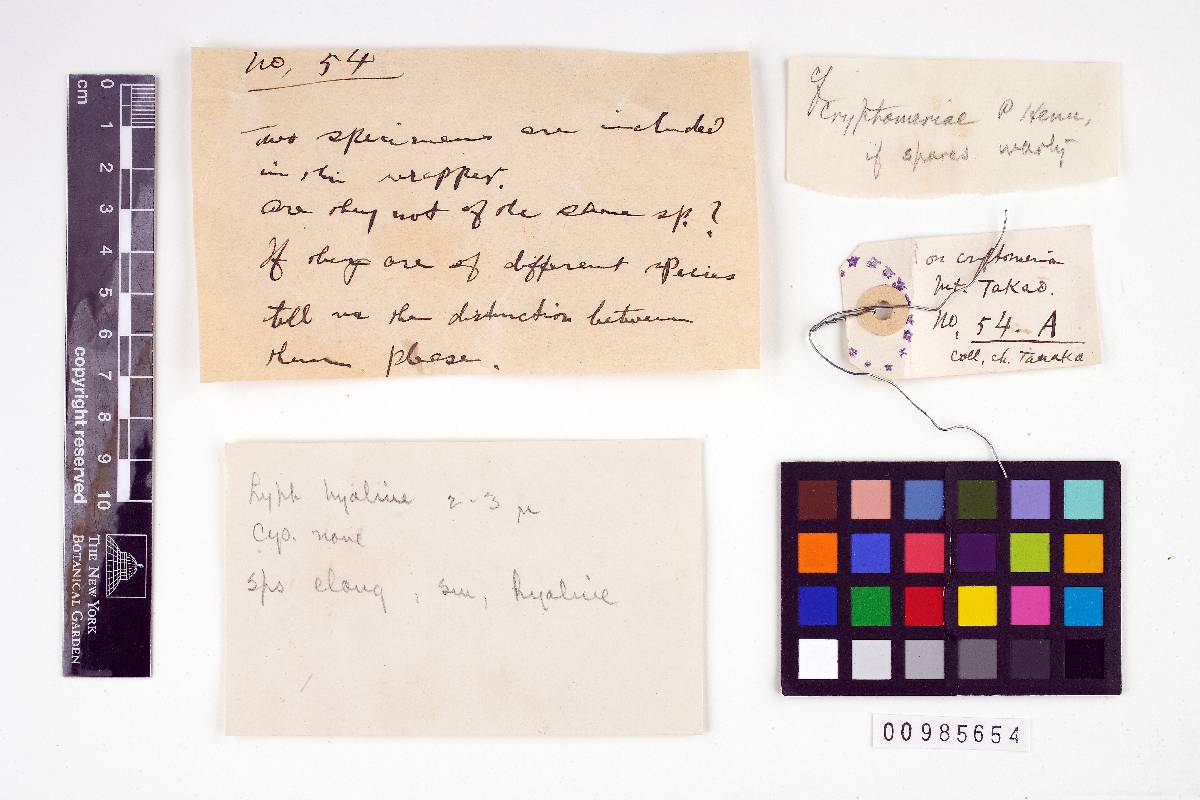 0 1 2 3 4 5 6 7 8 9 10
cm
copyright reserved
THE NEW YORK
BOTANICAL GARDEN
No, 54
Two specimens are included
in this wrapper.
are they not of the same sp.?
If they are of different species
tell us the distinction between
them please.
Hyph hyaline 2-3 µ
Cys. none
Sps elong, sm, hyaline
cf
Cryptomeriae P Henn,
if spores warty
on cryptomeria
Mt. Takao.
No, 54. A
Coll, ch. Tanaka
00985654